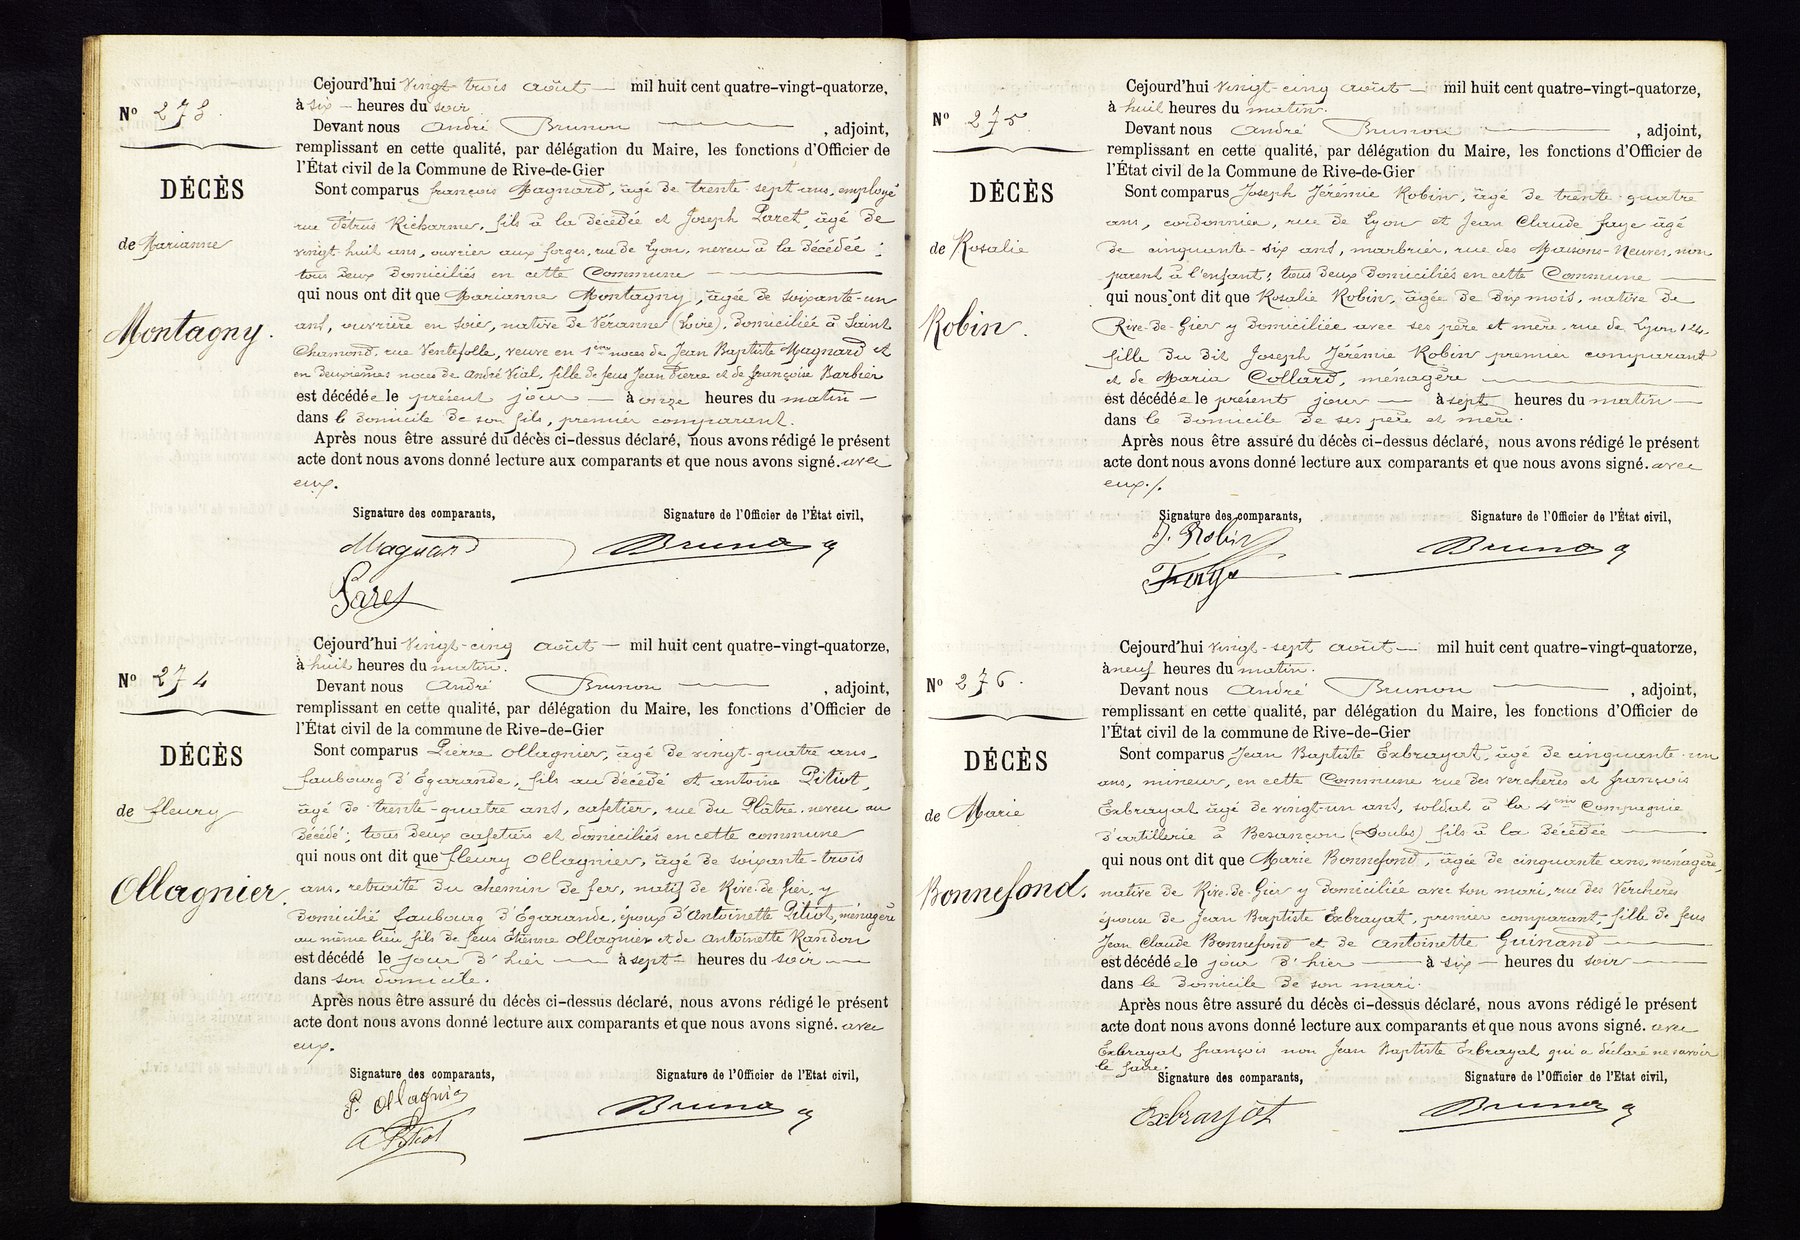 Nº 273.
DÉCÈS
de Marianne
Montagny.
Cejourd'hui vingt-trois août — mil huit cent quatre-vingt-quatorze,
à six — heures du soir
Devant nous André Brunon — , adjoint,
remplissant en cette qualité, par délégation du Maire, les fonctions d'Officier de
l'État civil de la Commune de Rive-de-Gier
Sont comparus françois Magnard, âgé de trente-sept ans, employé
rue Pétrus Richarme, fils à la décédée et Joseph Paret, âgé de
vingt-huit ans, ouvrier aux forges, rue de Lyon, neveu à la décédée;
tous deux domiciliés en cette Commune —
qui nous ont dit que Marianne Montagny, âgée de soixante-un
ans, ouvrière en soie, native de Véranne (Loire), domiciliée à Saint
Chamond, rue Ventefolle, veuve en 1ères noces de Jean Baptiste Magnard et
en deuxièmes noces de André Vial, fille de feus Jean Pierre et de françoise Barbier
est décédée le présent jour — à onze heures du matin —
dans le domicile de son fils, premier comparant.
Après nous être assuré du décès ci-dessus déclaré, nous avons rédigé le présent
acte dont nous avons donné lecture aux comparants et que nous avons signé. avec
eux.
Signature des comparants, Signature de l'Officier de l'État civil,
Magnard Brunon
Paret
Nº 274
DÉCÈS
de fleury
Ollagnier.
Cejourd'hui vingt-cinq août — mil huit cent quatre-vingt-quatorze,
à huit heures du matin.
Devant nous André Brunon — , adjoint,
remplissant en cette qualité, par délégation du Maire, les fonctions d'Officier de
l'État civil de la commune de Rive-de-Gier
Sont comparus Pierre Ollagnier, âgé de vingt-quatre ans,
faubourg d'Égarande, fils au décédé et antoine Pitiot,
âgé de trente-quatre ans, cafetier, rue du Plâtre, neveu au
décédé; tous deux cafetiers et domiciliés en cette commune
qui nous ont dit que fleury Ollagnier, âgé de soixante-trois
ans, retraité du chemin de fer, natif de Rive-de-Gier, y
domicilié faubourg d'Égarande, époux d'Antoinette Pitiot, ménagère
au même lieu, fils de feus Étienne Ollagnier et de Antoinette Randon
est décédé le jour d'hier — à sept — heures du soir —
dans son domicile.
Après nous être assuré du décès ci-dessus déclaré, nous avons rédigé le présent
acte dont nous avons donné lecture aux comparants et que nous avons signé. avec
eux.
Signature des comparants, Signature de l'Officier de l'Etat civil,
P. Ollagnier Brunon
A Pitiot
Nº 275.
DÉCÈS
de Rosalie
Robin.
Cejourd'hui vingt-cinq août — mil huit cent quatre-vingt-quatorze,
à huit heures du matin.
Devant nous André Brunon — , adjoint,
remplissant en cette qualité, par délégation du Maire, les fonctions d'Officier de
l'État civil de la Commune de Rive-de-Gier
Sont comparus Joseph Jérémie Robin, âgé de trente-quatre
ans, cordonnier, rue de Lyon et Jean Claude faye âgé
de cinquante-six ans, marbrier, rue des Maisons-Neuves, non
parent à l'enfant; tous deux domiciliés en cette Commune —
qui nous ont dit que Rosalie Robin, âgée de dix mois, native de
Rive-de-Gier y domiciliée avec ses père et mère, rue de Lyon 124,
fille du dit Joseph Jérémie Robin premier comparant
et de Maria Collard, ménagère —
est décédée le présent jour — à sept heures du matin —
dans le domicile de ses père et mère.
Après nous être assuré du décès ci-dessus déclaré, nous avons rédigé le présent
acte dont nous avons donné lecture aux comparants et que nous avons signé. avec
eux./.
Signature des comparants, Signature de l'Officier de l'État civil,
J. Robin Brunon
Faye
Nº 276.
DÉCÈS
de Marie
Bonnefond.
Cejourd'hui vingt-sept août — mil huit cent quatre-vingt-quatorze,
à neuf heures du matin.
Devant nous André Brunon — , adjoint,
remplissant en cette qualité, par délégation du Maire, les fonctions d'Officier de
l'État civil de la Commune de Rive-de-Gier
Sont comparus Jean Baptiste Exbrayat, âgé de cinquante-un
ans, mineur, en cette Commune rue des Vercheres et françois
Exbrayat âgé de vingt-un ans, soldat à la 4eme Compagnie
d'artillerie à Besançon (Doubs) fils à la décédée —
qui nous ont dit que Marie Bonnefond, âgée de cinquante ans, ménagère,
native de Rive-de-Gier y domiciliée avec son mari, rue des Verchères
épouse de Jean Baptiste Exbrayat, premier comparant, fille de feus
Jean Claude Bonnefond et de antoinette Guinand —
est décédée le jour d'hier — à six — heures du soir —
dans le domicile de son mari.
Après nous être assuré du décès ci-dessus déclaré, nous avons rédigé le présent
acte dont nous avons donné lecture aux comparants et que nous avons signé. avec
Exbrayat françois non Jean Baptiste Exbrayat qui a déclaré ne savoir
le faire.
Signature des comparants, Signature de l'Officier de l'Etat civil,
Exbrayat Brunon